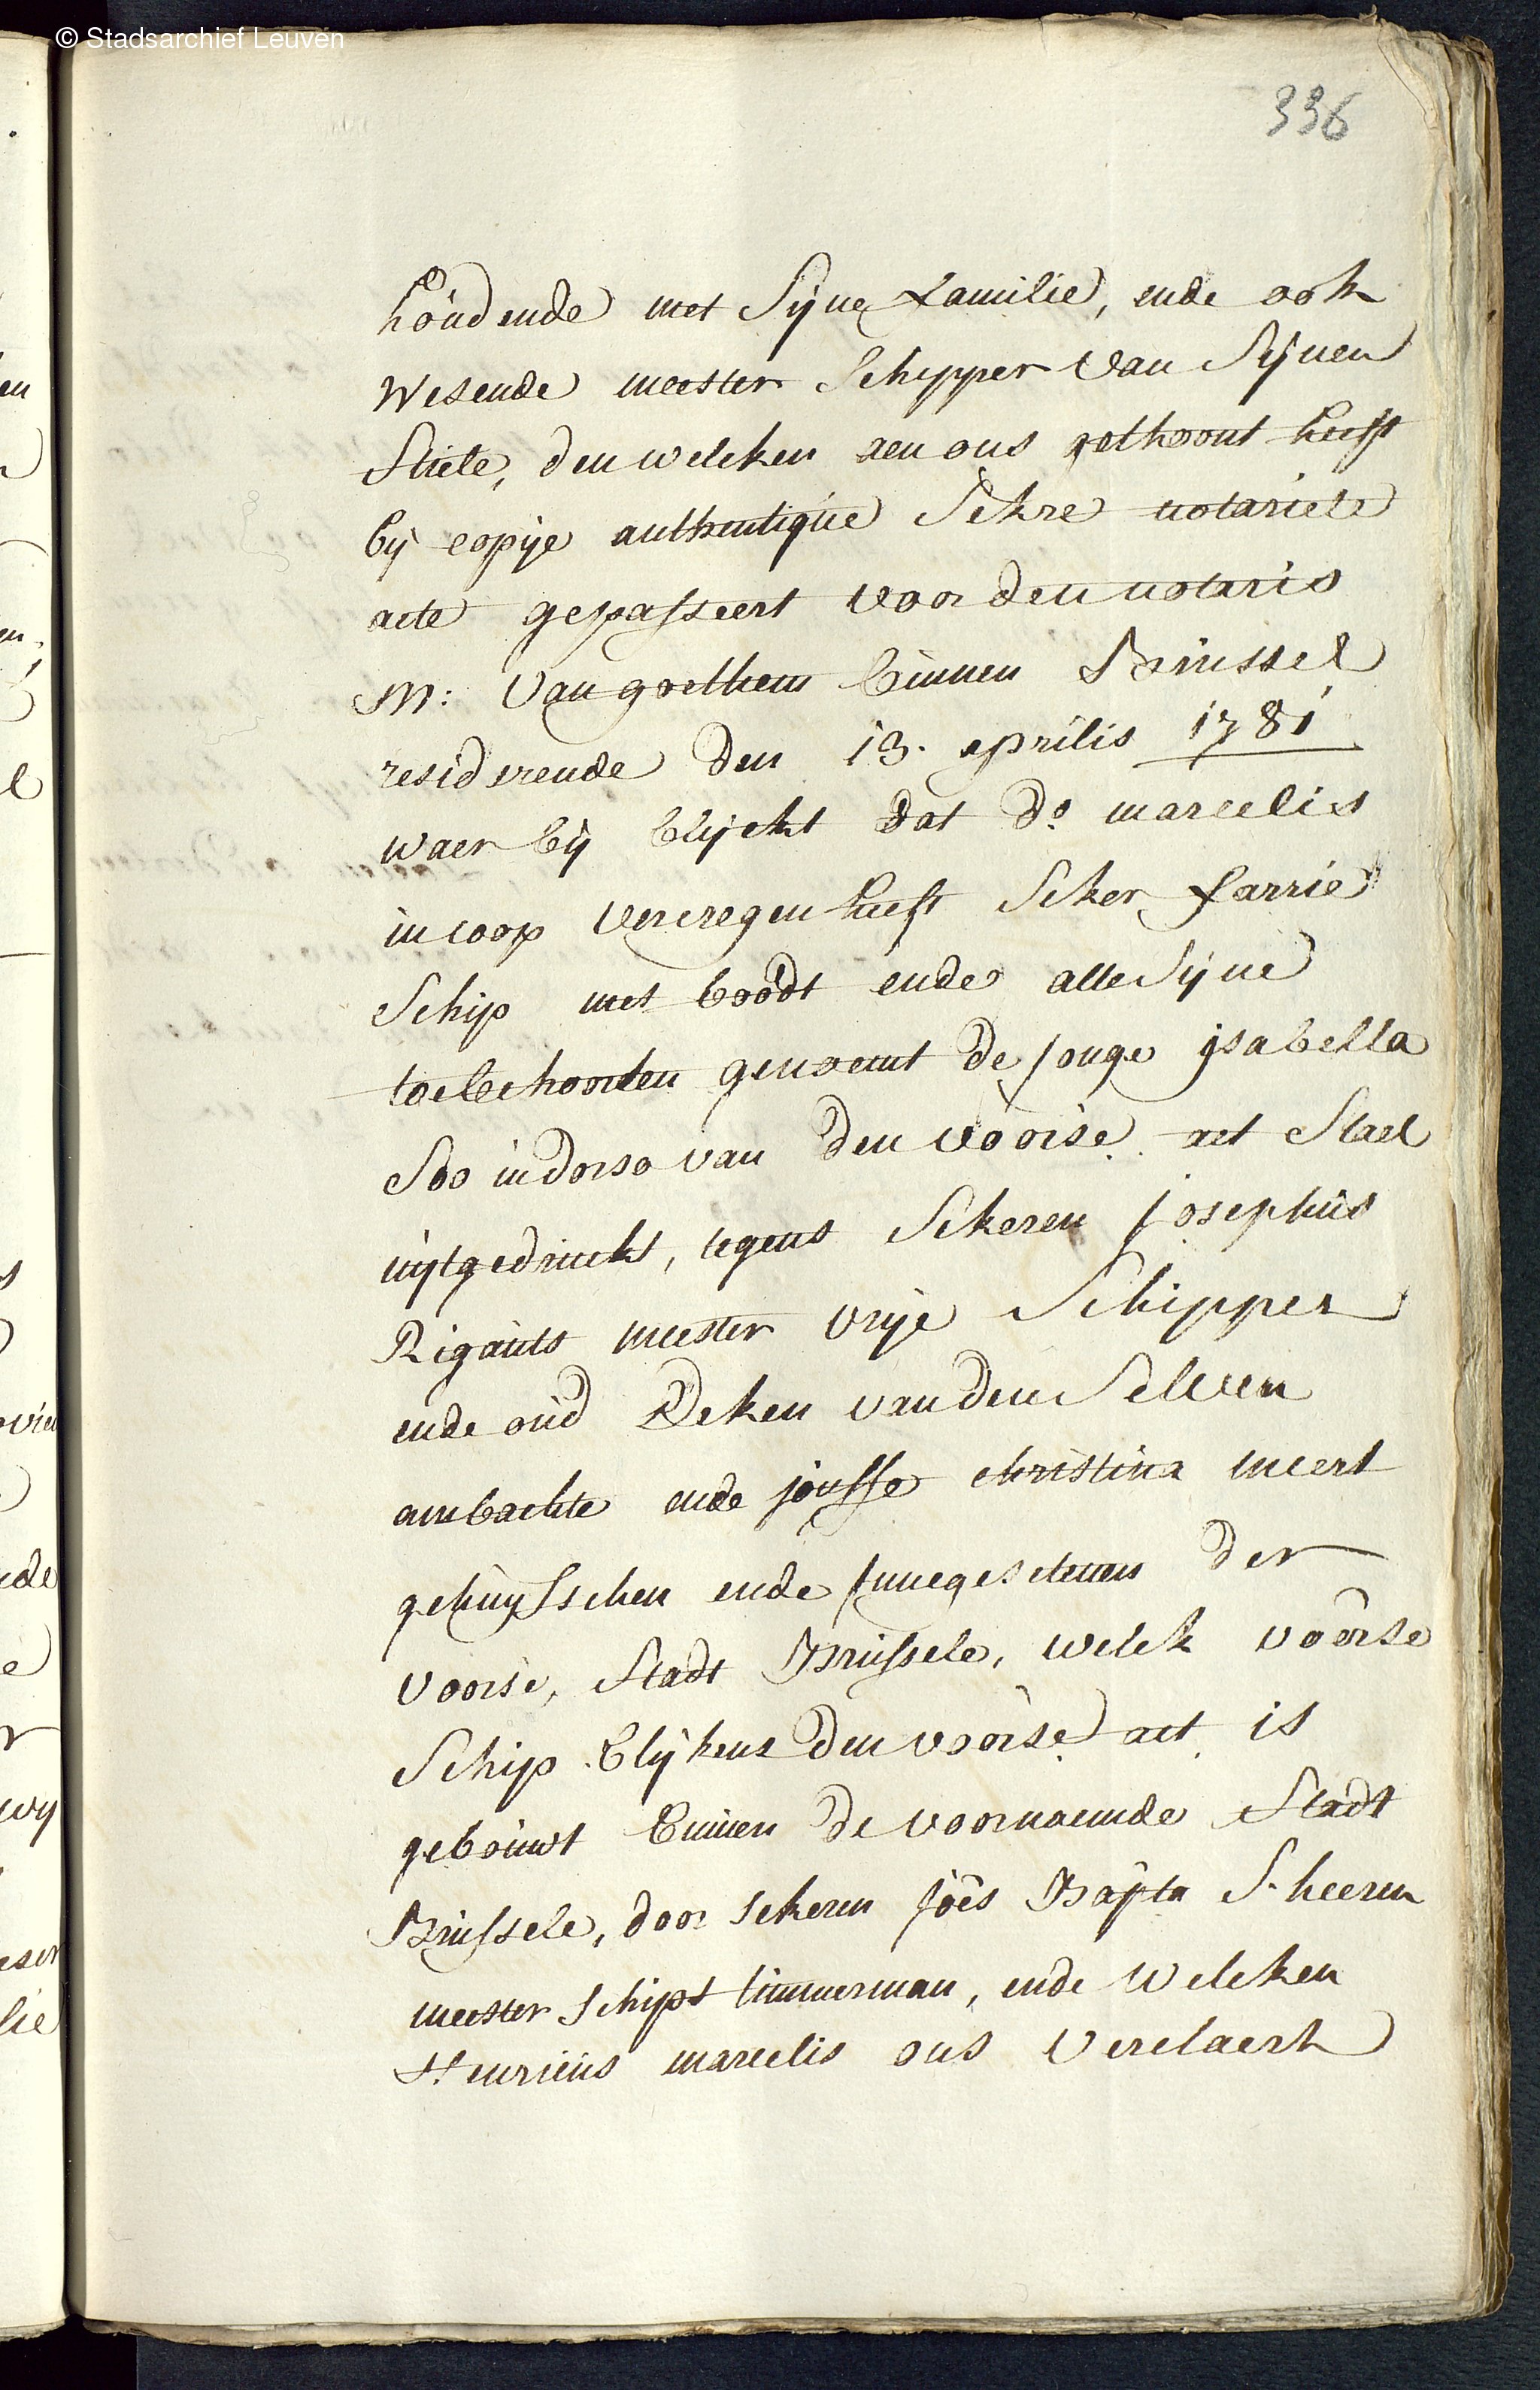 © Stadsarchief Leuven
336
houdende met Sijne familie, ende ook
wesende meester Schipper van Sijnen
Stiele, den welcken aen ons gethoont heeft
bij copije authentique Sekre notariele
acte gepasseert voor den notaris
M: Van goethem binnen Brussel
residerende den 13. aprilis 1781
waer bij blijckt dat do marcelis
in coop vercregen heeft Seker farrie
Schip met boodt ende alle Sijne
toebehoorten genoemt de Jonge jsabella
Soo in dorso van den voorse. act Stael
uijtgedruckt, tegens Sekeren Josephus
Rigauts meester vrije Schipper
ende oud Deken van den Selven
ambachte ende jouffe christina meert
gehuysschen ende Innegesetenen der
voorse, Stadt Brussele, welck voorse
Schip blijkens den voorse act is
gebouwt binnen de voornoemde Stadt
Brussele, door sekeren joes Bapta S. heeren
meester schips timmerman, ende welcken
Henricus marcelis ons verclaert